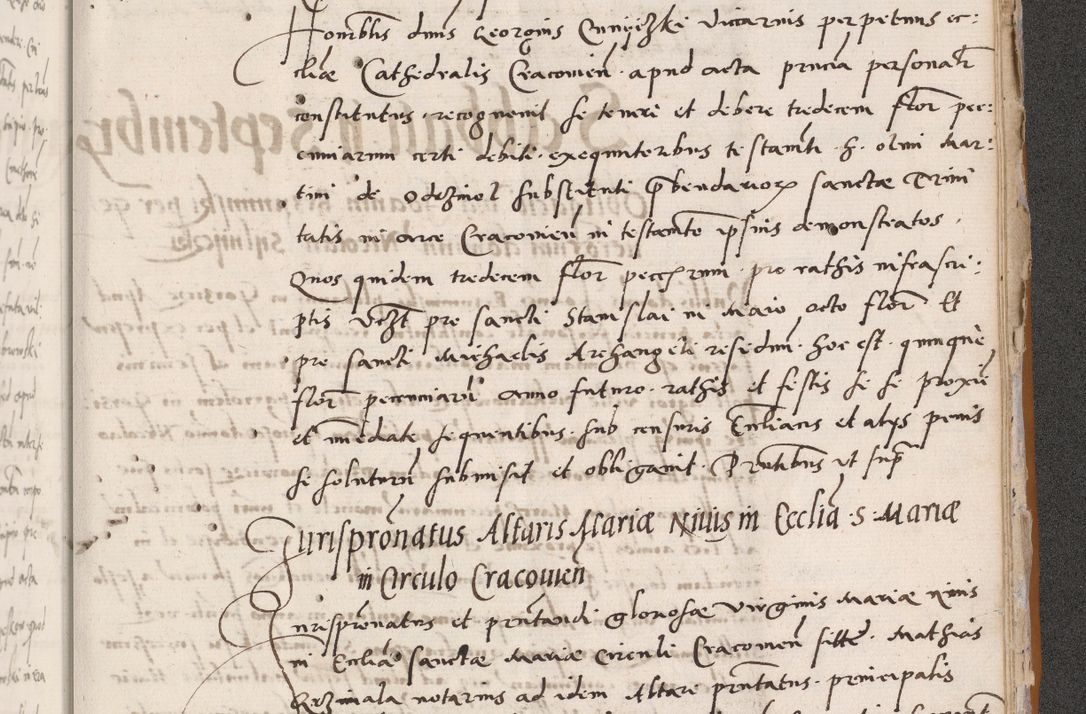 Honorabilis dnus Georgius Cuniczki viccarius perpetuus ec:
cliæ Cathedralis Cracovien̄. apud acta p̄ncia personar̄
constitutus, recognovit se teneri et debere tredecem flor̄ pec:
cuniarum certi debiti. exequutoribus testam̄ti. S. olim Mar:
tini de Odrziwol substituti p̄bendarioꝝ sanctæ Trini
tatis in arce Cracovien̄ in testam̄to ipsius demonstratos.
Quos quidem tredecem flor̄ pecc̄rum. pro rathis infrascri:
ptis vcz̄t pro sancti Stanislai in Maio octo flor̄ Et
pro sancti Michaelis Archangeli residuū. hoc est. quinque
flor̄ pecuniarū anno futuro. rathis et festis se se proxīe
et im̄ediate sequentibus. sub censuris Ec̄cliacis et alys penis
se soluturū submisit et obligavit. Pn̄tibus ut sup̄
Jurispr̄onatus Altaris Mariæ Nivis in Ecclia .S. Mariæ
in Circulo Cracovien̄
Jurespr̄onatus et pn̄tandi gloriosæ virginis Mariæ Nivis
in Ecclia sanctæ Mariæ Circuli Cracovien̄ site. Mathias
Krzimala notarius ad idem Altare pn̄tatus. principalis